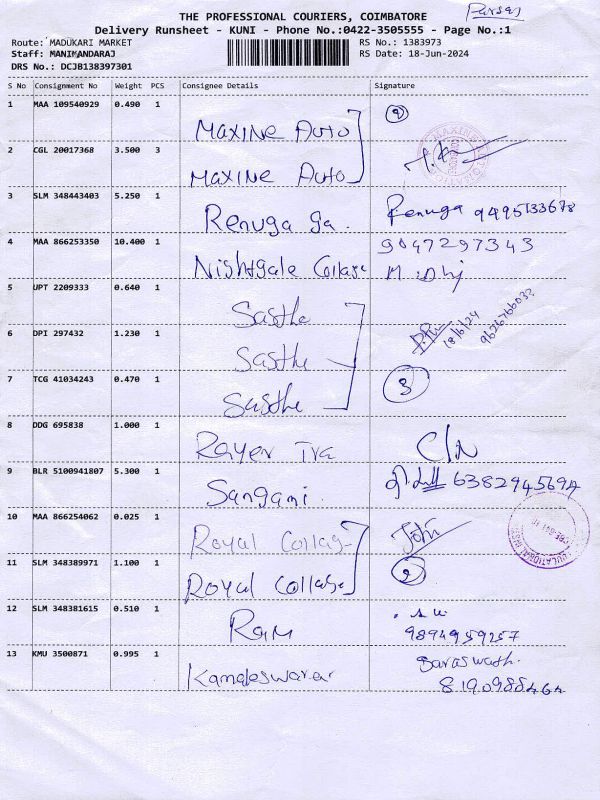 Parsel
THE PROFESSIONAL COURIERS, COIMBATORE
Delivery Runsheet - KUNI - Phone No.:0422-3505555 - Page No.:1
Route: MADUKARI MARKET RS No.: 1383973
Staff: MANIMANDARAJ RS Date: 18-Jun-2024
DRS No.: DCJB138397301
S No Consignment No Weight PCS Consignee Details Signature
1 MAA 109540929 0.490 1 Maxine Auto 2
2 CGL 20017368 3.500 3 Maxine Auto
3 SLM 348443403 5.250 1 Renuga ga. Renuga 9495133678
4 MAA 866253350 10.400 1 Nishtgale Collage 9047297343
5 UPT 2209333 0.640 1 Sasthe
6 DPI 297432 1.230 1 Sasthe 18/6/24
7 TCG 41034243 0.470 1 Sasthe 3
8 DDG 695838 1.000 1 Rayer Tra C/N
9 BLR 5100941807 5.300 1 Sangami.
10 MAA 866254062 0.025 1 Royal Collag John
11 SLM 348389971 1.100 1 Royal Collage 2
12 SLM 348381615 0.510 1 Ram
9894959257
13 KMU 3500871 0.995 1 Kamaleswarar Saraswathi.
8190988464